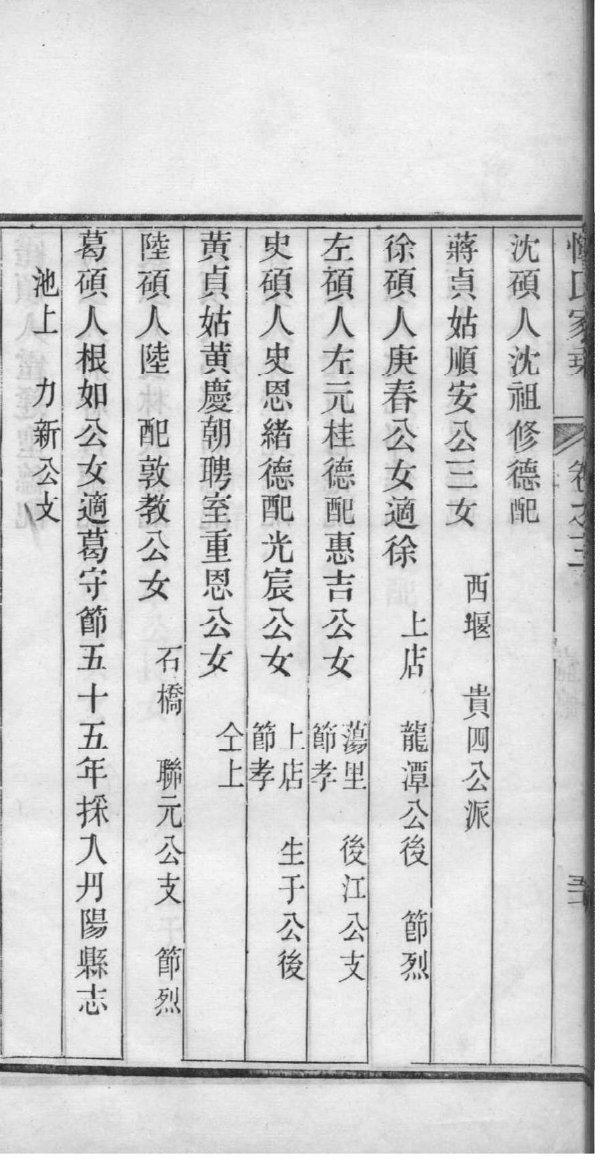 氏家
卷之三
沈碩人沈祖修德配
蔣貞姑順安公三女 西堰 貴四公派
徐碩人庚春公女適徐 上店 龍潭公後 節烈
左碩人左元桂德配惠吉公女 蕩里 後江公支 節孝
史碩人史恩緒德配光宸公女 上店 生于公後 節孝
黃貞姑黃慶朝聘室重恩公女 仝上
陸碩人陸 配敦教公女 石橋 聯元公支 節烈
葛碩人根如公女適葛守節五十五年採入丹陽縣志
池上 力新公支